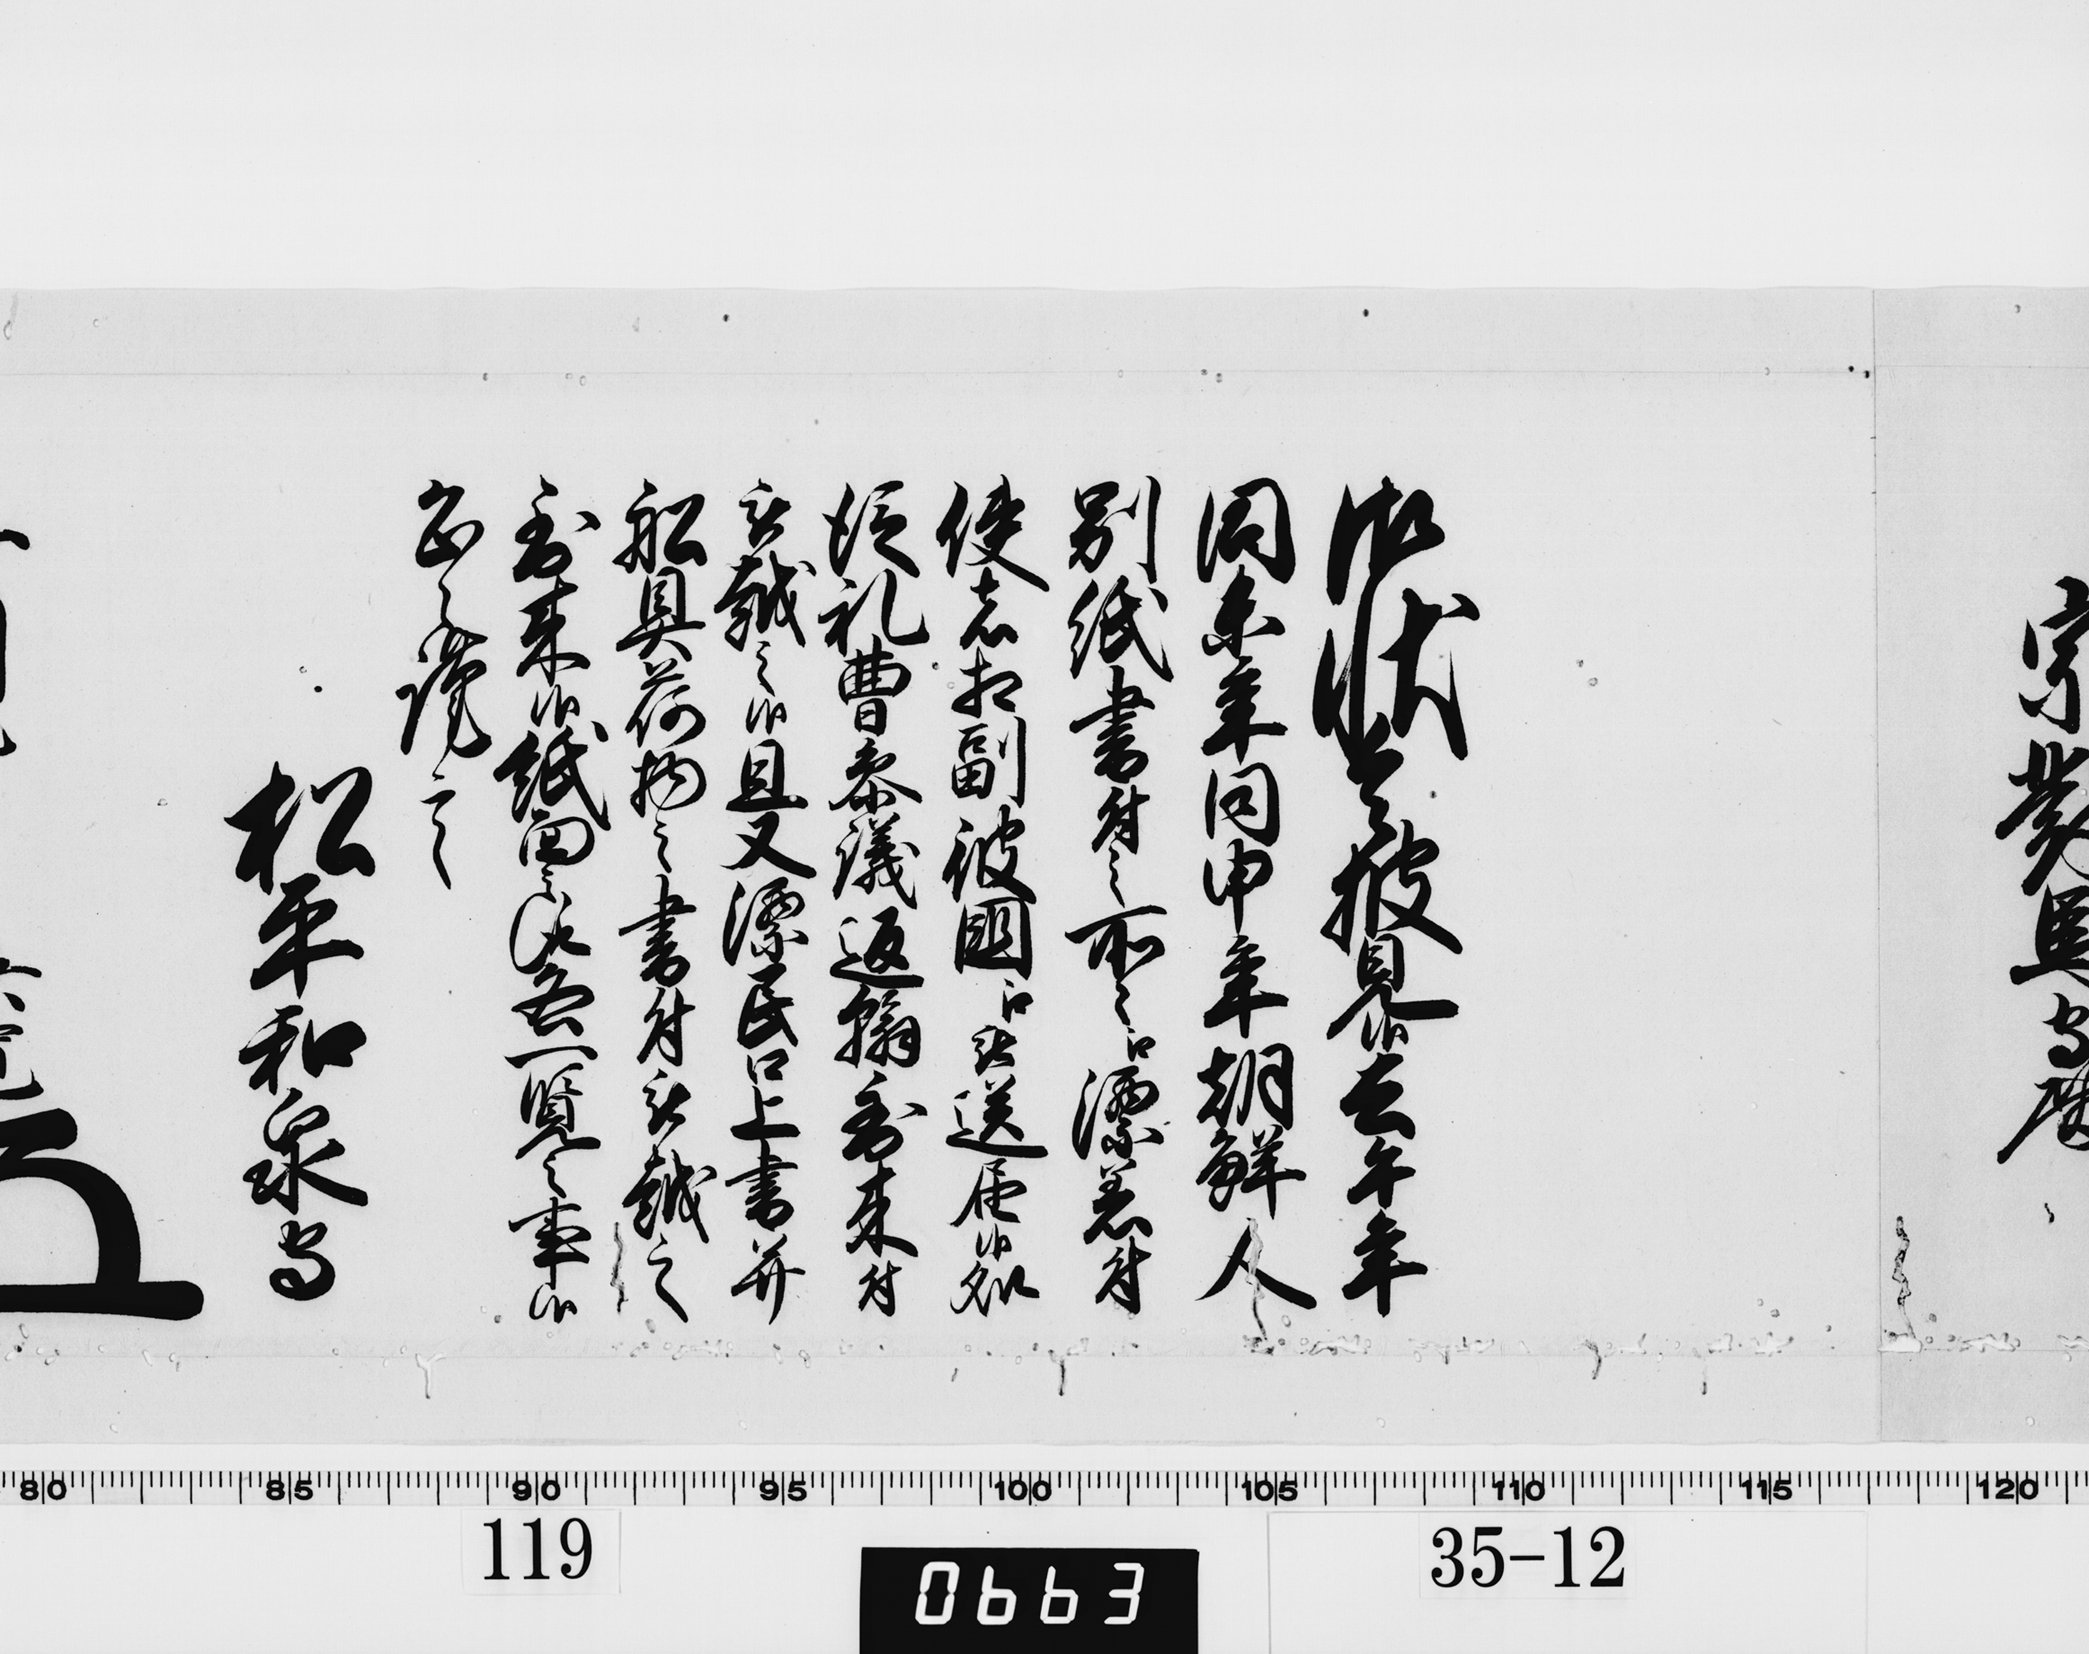 宗對馬守殿
御状令披見候去午年
同未年同申年朝鮮人
別紙書付之所々江漂着付
使者相副彼国江被送届候処
従礼曹参議返翰到来付
被越之候且又漂民口上書并
船具荷物之書付被越之
到来候紙面之趣各一覧之事候
恐々謹言
松平和泉守
80 85 90 95 100 105 110 115 120
119
0663
35-12